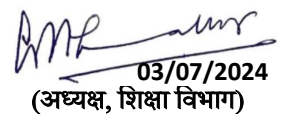 03/07/2024
(अध्यक्ष, शिक्षा विभाग)